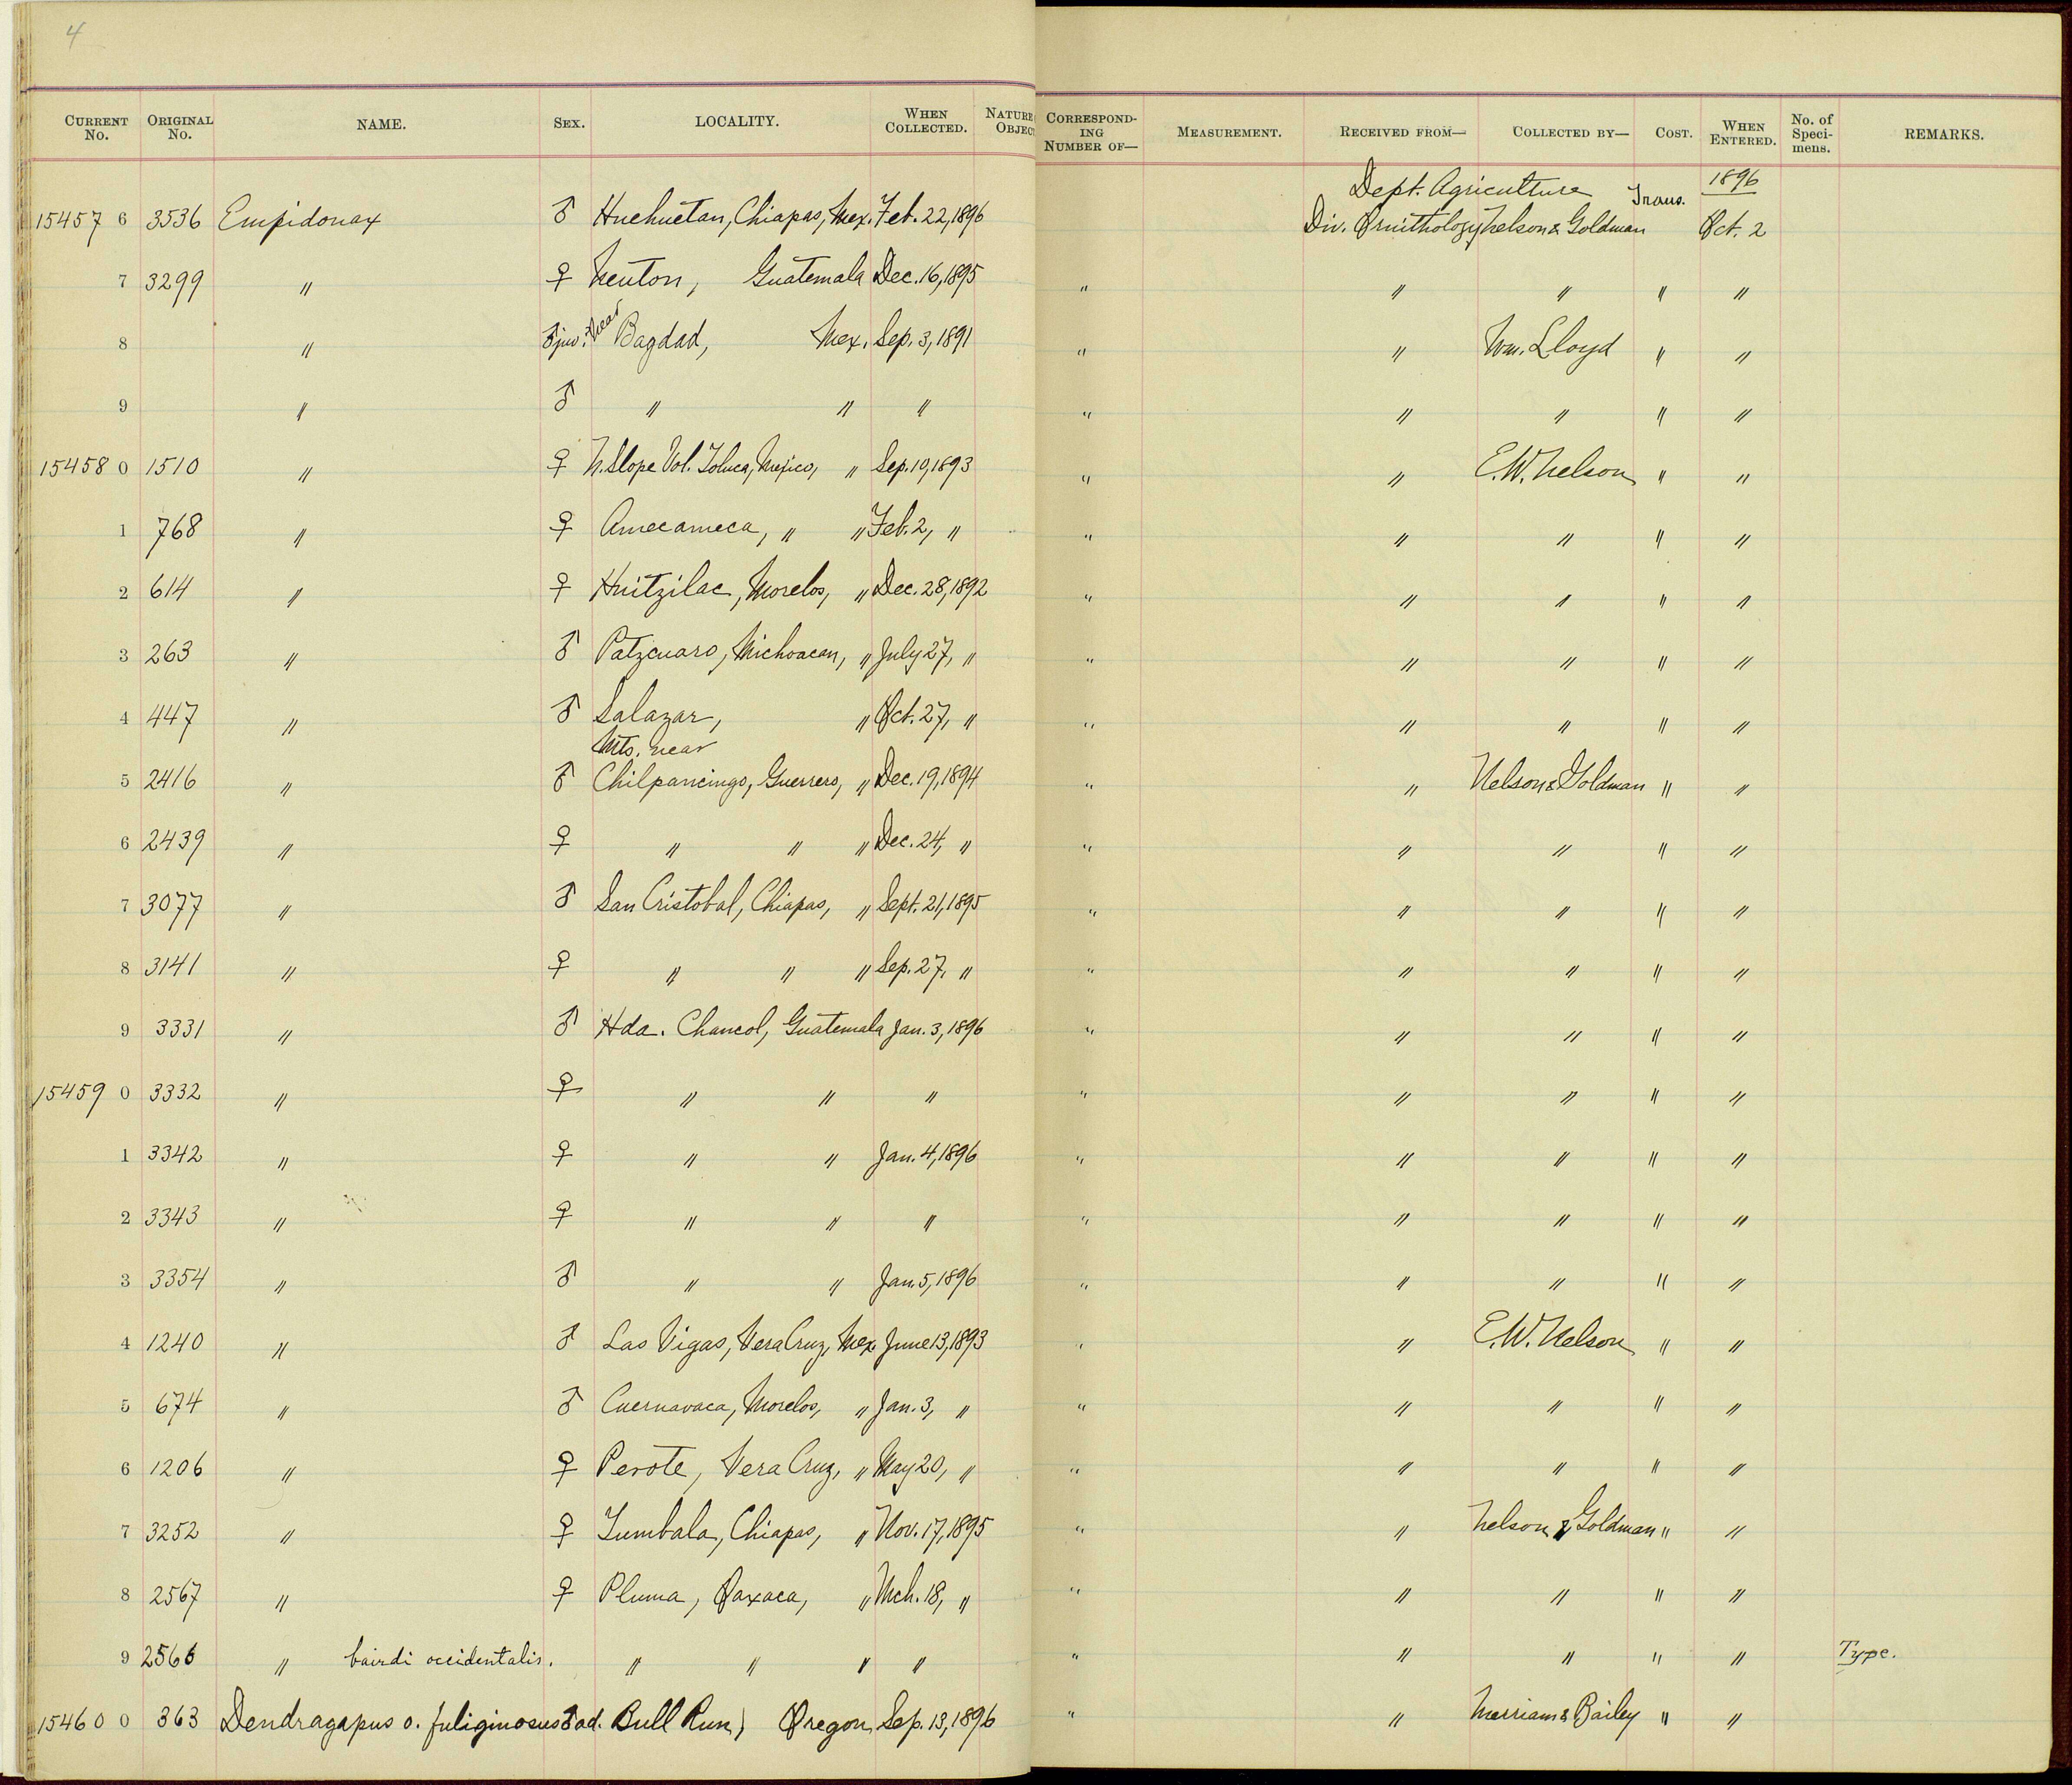 4
CURRENT No. ORIGINAL No. NAME. SEX. LOCALITY. WHEN COLLECTED. NATURE OBJECT CORRESPONDING NUMBER OF— MEASUREMENT. RECEIVED FROM— COLLECTED BY— COST. WHEN ENTERED. No. of Specimens. REMARKS.
Dept. Agriculture Trans. 1896
15457 6 3536 Empidonax ♂ Huehuetan, Chiapas, Mex. Feb. 22, 1896 Div. Ornithology Nelson & Goldman Oct. 2
7 3299 " ♀ Nenton, Guatemala Dec. 16, 1895 " " " " "
8 " ♂ juv. near Bagdad, Mex. Sep. 3, 1891 " " Wm. Lloyd " "
9 " ♂ " " " " " " " "
15458 0 1510 " ♀ N. Slope Vol. Toluca, Mexico, " Sep. 10, 1893 " " E.W. Nelson " "
1 768 " ♀ Amecameca, " " Feb. 2, " " " " " "
2 614 " ♀ Huitzilac, Morelos, " Dec. 28, 1892 " " " " "
3 263 " ♂ Patzcuaro, Michoacan, " July 27, " " " " " "
4 447 " ♂ Salazar, " Oct. 27, " " " " " "
Mts. near
5 2416 " ♂ Chilpancingo, Guerrero, " Dec. 19, 1894 " " Nelson & Goldman " "
6 2439 " ♀ " " " Dec. 24, " " " " " "
7 3077 " ♂ San Cristobal, Chiapas, " Sept. 21, 1895 " " " " "
8 3141 " ♀ " " " Sep. 27, " " " " " "
9 3331 " ♂ Hda. Chancol, Guatemala Jan. 3, 1896 " " " " "
15459 0 3332 " ♀ " " " " " " " "
1 3342 " ♀ " " Jan. 4, 1896 " " " " "
2 3343 " ♀ " " " " " " " "
3 3354 " ♂ " " Jan. 5, 1896 " " " " "
4 1240 " ♂ Las Vigas, Vera Cruz, Mex. June 13, 1893 " " E.W. Nelson " "
5 674 " ♂ Cuernavaca, Morelos, " Jan. 3, " " " " " "
6 1206 " ♀ Perote, Vera Cruz, " May 20, " " " " " "
7 3252 " ♀ Tumbala, Chiapas, " Nov. 17, 1895 " " Nelson & Goldman " "
8 2567 " ♀ Pluma, Oaxaca, " Mch. 18, " " " " " "
9 2566 " bairdi occidentalis. " " " " " " " " " Type.
15460 0 363 Dendragapus o. fuliginosus ♂ ad. Bull Run, Oregon, Sep. 13, 1896 " " Merriam & Bailey " "